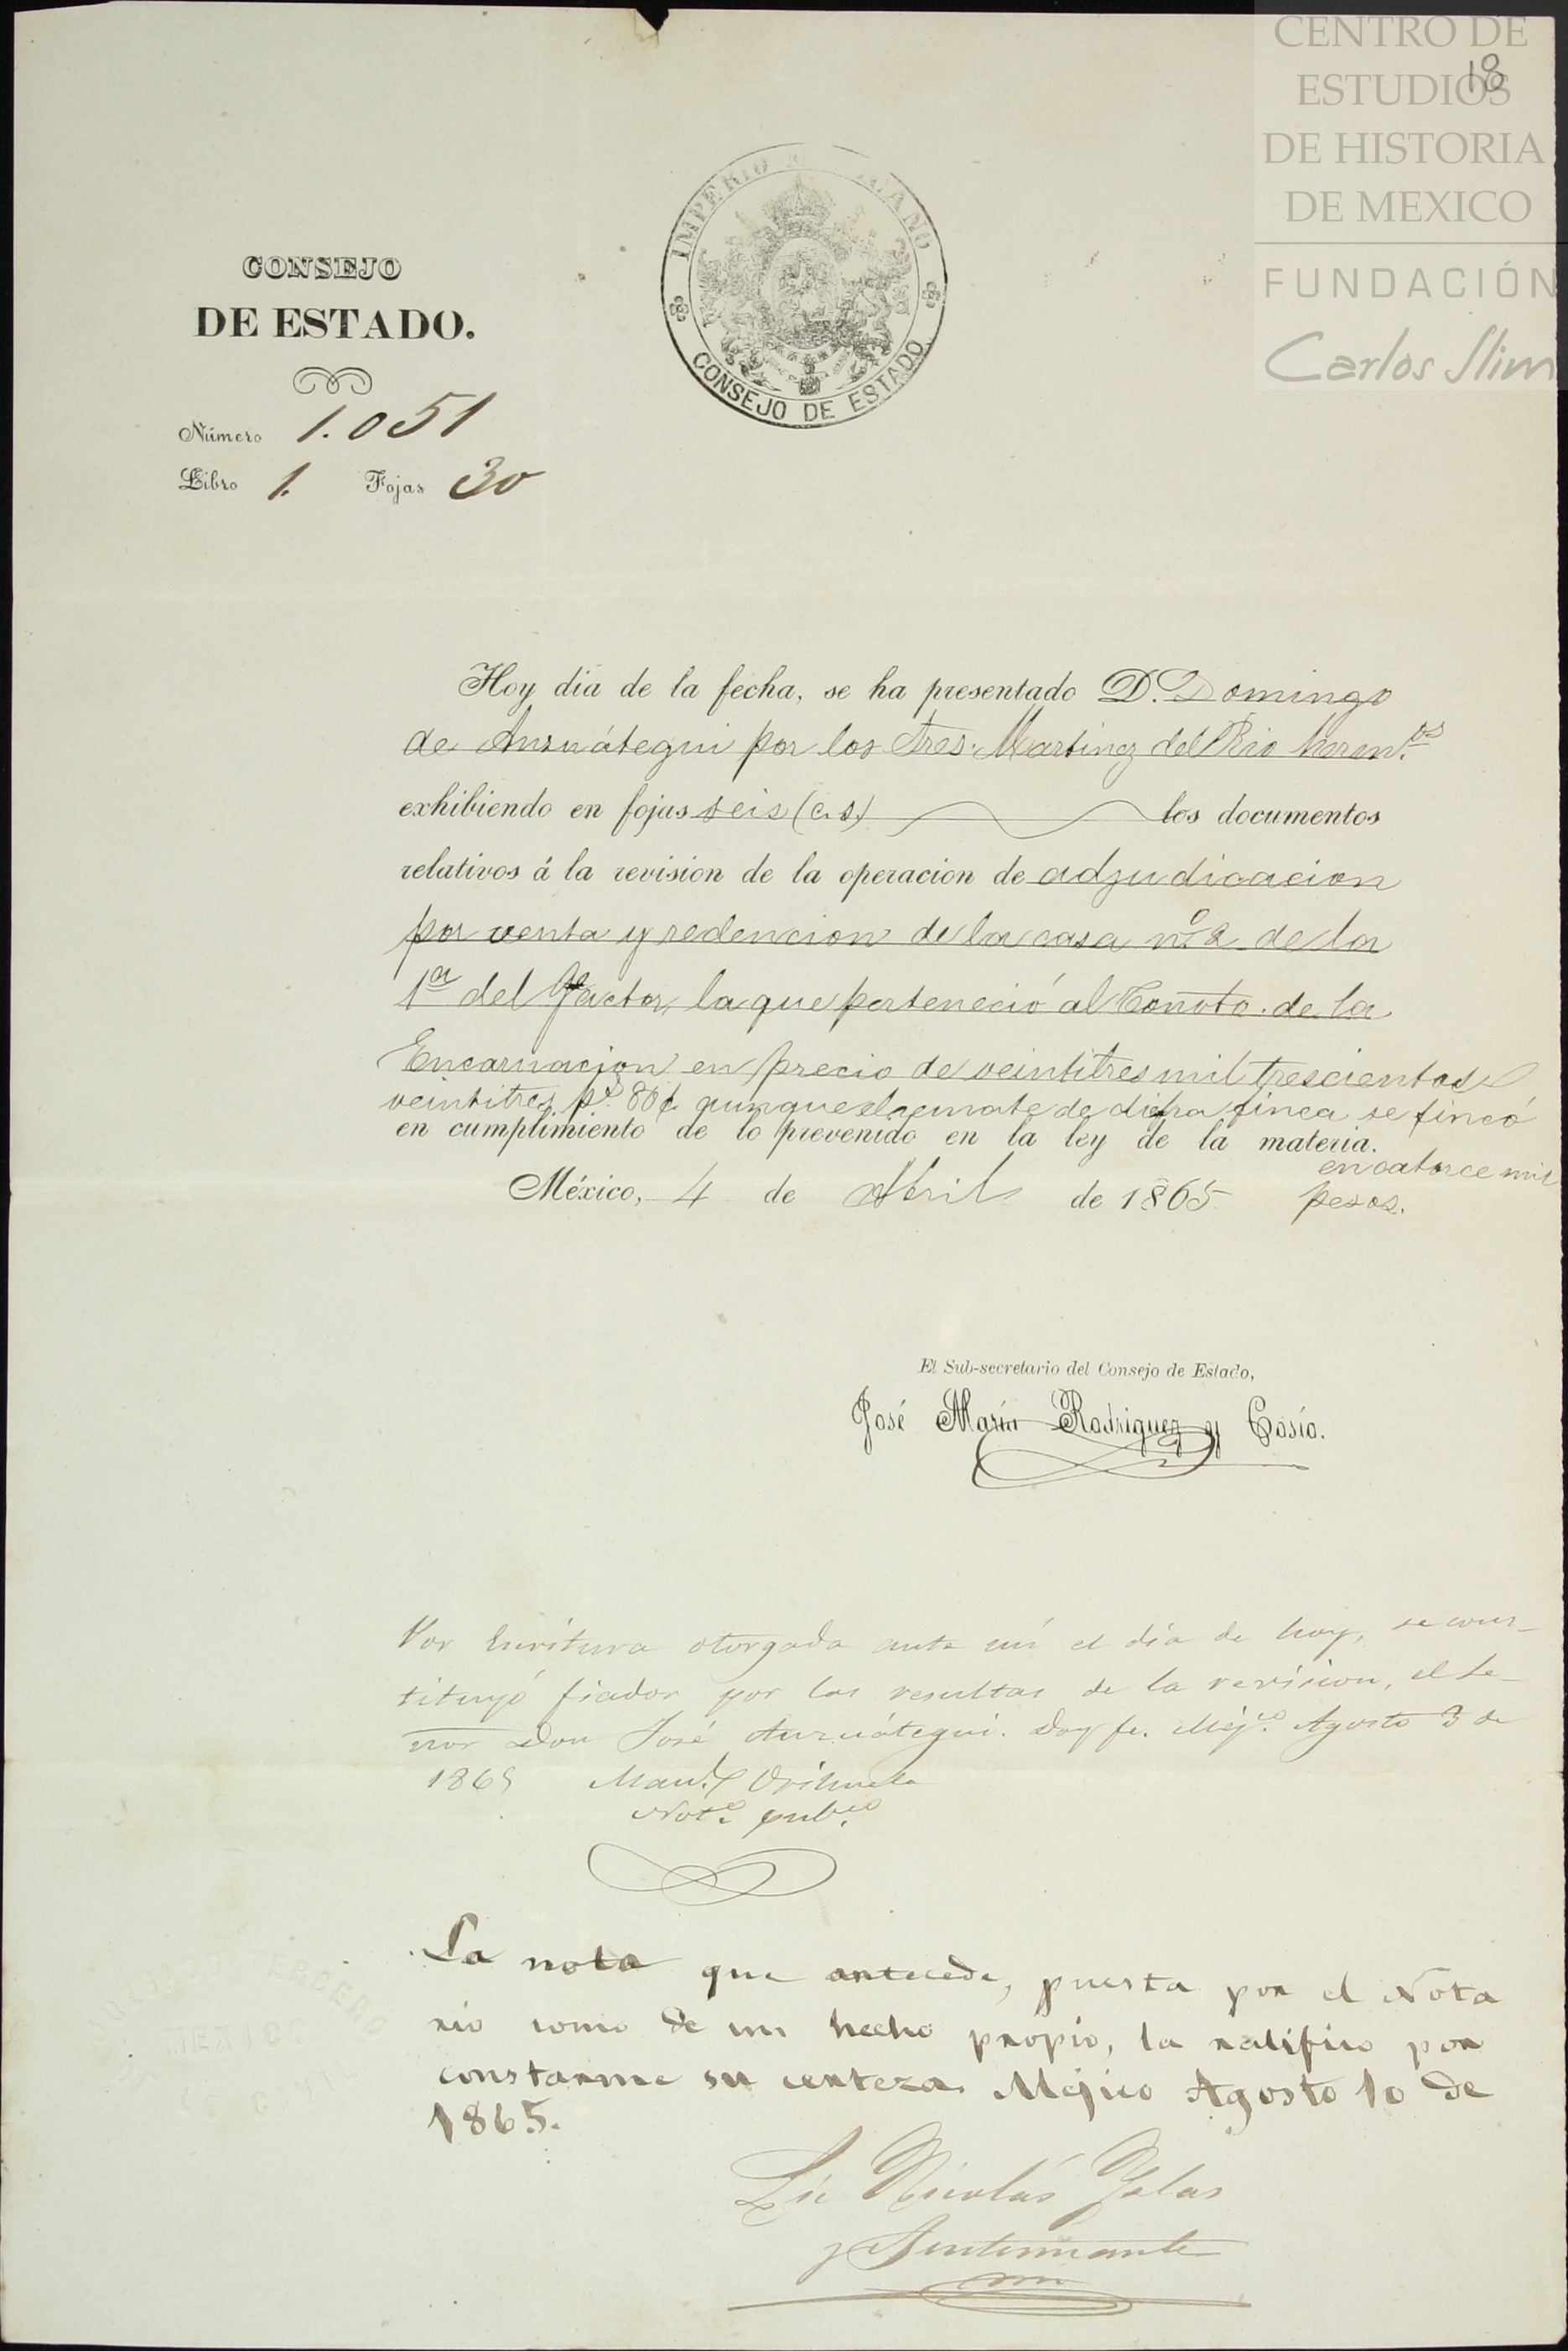 CENTRO DE
ESTUDIOS
DE HISTORIA
DE MEXICO
FUNDACIÓN
Carlos Slim
18
IMPERIO MEXICANO
CONSEJO DE ESTADO
CONSEJO
DE ESTADO.
Número 1.051
Libro 1. Fojas 30
Hoy dia de la fecha, se ha presentado D. Domingo
de Ansuátegui por los Sres. Martinez del Rio herm.os
exhibiendo en fojas seis (c. s.) los documentos
relativos á la revision de la operacion de adjudicacion
por venta y redencion de la casa n.o 2 de la
1a del Factor, la que perteneció al Convto. de la
Encarnacion en precio de veintitres mil trescientos
veintitres ps. 80 ¢. aunque el remate de dicha finca se fincó
en cumplimiento de lo prevenido en la ley de la materia.
en catorce mil
México, 4 de Abril de 1865 pesos.
El Sub-secretario del Consejo de Estado,
José María Rodriguez y Cosío.
Por Escritura otorgada ante mí el día de hoy, se cons-
tituyó fiador por las resultas de la revision, el Se-
ñor Don José Anzuátegui. Doy fe. Méj.co Agosto 3 de
1865 Man.l Orihuela
Not.o pub.co
La nota que antecede, puesta por el Nota
rio como de un hecho propio, la ratifico por
constarme su certeza. Méjico Agosto 10 de
1865.
Lic Nicolás
y